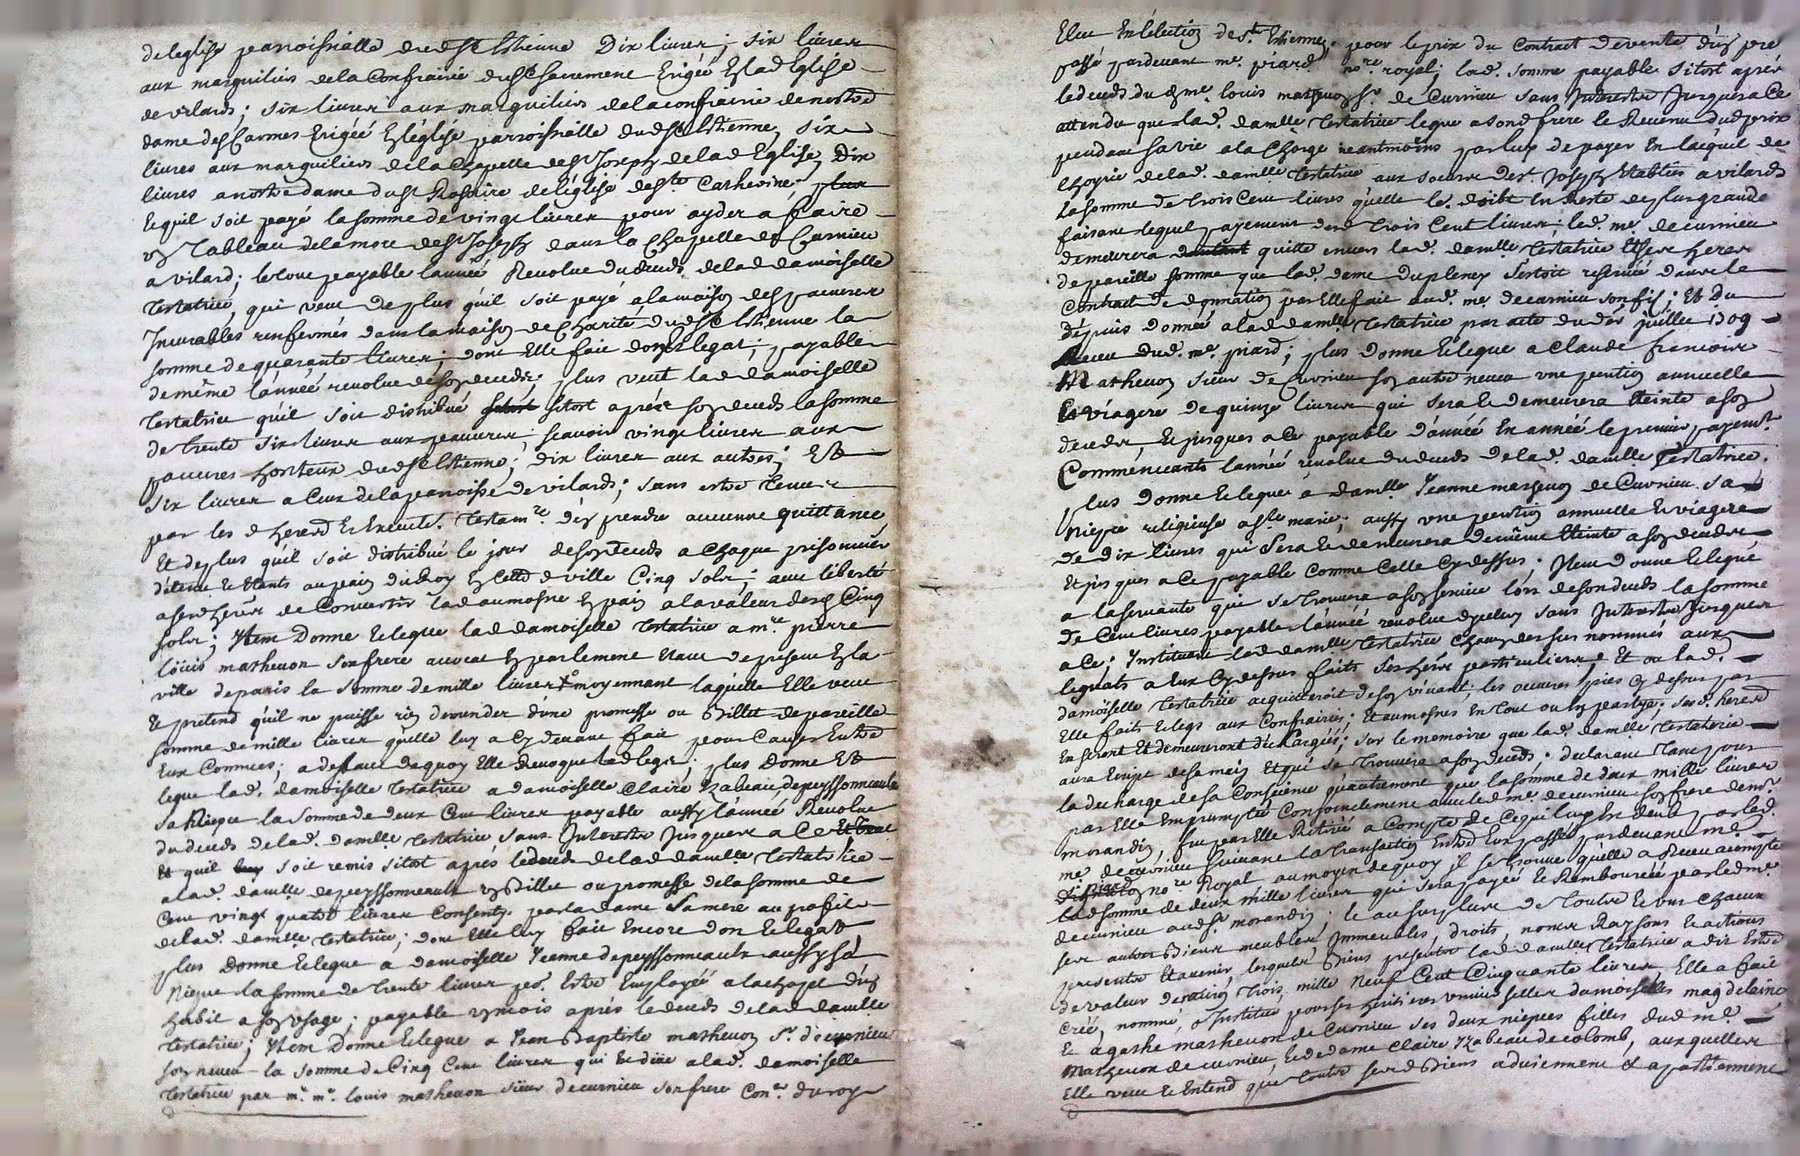 de leglise parroissialle dud St Estienne Dix livres; six livres
aux marguiliers dela Confrairie du St Sacrement Erigée En lad Eglise
de vilards; six livres aux marguiliers dela confrairie de nostre
dame des Carmes Erigéé En léglise parroissialle dud St Estienne, six
livres aux marguiliers dela Chapelle de St Joseph de lad Eglise, Dix
livres a nostre dame du St Rosaire de léglise de Ste Catherine,
Et quil soit payé la somme de vingt livres pour ayder a faire
un Tableau de la mort de St Joseph dans la Chapelle de Curnieu
a vilard; le tout payable lannéé Revolue du deceds de lad damoiselle
Testatrice, qui veut de plus quil soit payé a la maison des pauvres
Incurables renfermés dans la maison de Charité dud St Estienne la
somme de quarante livres; dont Elle fait don Et legat; payable
de même lannéé revolue de son deceds; plus veut lad damoiselle
Testatrice quil soit distribué sitost aprés son deceds la somme
de trente six livres aux pauvres; scavoir vingt livres aux
pauvres honteux dud St Estienne; dix livres aux autres; Et
six livres a Ceux de la parroisse de vilards; sans estre tenus
par les d heres Et Executr. testamre. d'en prendre aucunne quittance,
Et de plus quil soit distribué le jour de son deceds a Chaque prisonnier
détenu Et Etants au pain du Roy En Cette d ville Cinq sols; avec liberté
a ses heres de Convertir lad aumosne En pain a la valeur desd Cinq
sols; Item Donne Et legue lad damoiselle testatrice a mre pierre
loüis mathevon son frere avocat En parlement Etant de present En la
ville de paris la somme de mille livres moyennant laquelle Elle veut
Et pretend quil ne puisse rien demander dune promesse ou Billet de pareille
somme de mille livres quelle luy a Cy devant fait pour Causes Entre
Eux Connues; a deffaut de quoy Elle Revoque led legs; plus Donne Et
legue lad. damoiselle testatrice a damoiselle Claire Izabeau de peyssonneaulx
sa Niepce la somme de deux Cent livres payable aussy lannéé Revolue
du deceds de lad. damlle testatrice sans Interests Jusques a Ce
Et quil soit remis sitost apres le deceds de lad damlle Testatrice
a lad. damlle de peyssonneaulx un Billet ou promesse de la somme de
Cent vingt quatre livres Consenty par la dame sa mere au profit
de lad. damlle testatrice; dont Elle luy fait Encore don Et legat
plus Donne Et legue a damoiselle Jeanne de peyssonneaulx aussy sa
Niepce la somme de trente livres pr. Estre Employéé a lachapt d'un
habit a son usage; payable un mois aprés le deceds de lad damlle
testatrice; Item Donne Et legue a Jean Baptiste mathevon Sr. de curnieu
son neveu la somme de Cinq Cent livres qui Est düe a lad. demoiselle
testatrice par mr. mre. louis mathevon sieur de curnieu son frere Conr. du roy
Eleu En lélection de St. Etienne, pour le prix du Contract de vente d'un pré
passé pardevant me. piard nore. royal; lad. somme payable sitost aprés
le deceds dud me. louis mathevon Sr. de Curnieu sans Interests Jusques a Ce
attendu que lad. damlle testatrice legue a sond frere le Revenu dud prix
pendant sa vie a la Charge neantmoins par luy de payer En lacquit de
de lad. damlle testatrice aux soeurs de St. Joseph Establies a vilards
la somme de trois Cent livres quelle le. doibt En Reste de plus grande
faisant lequel payement desd trois Cent livres; led. me. de curnieu
demeurera quitte envers lad. damlle testatrice Et ses heres
de pareille somme que lad. dame dupleney s'estoit reservéé dans le
Contract de donnation par Elle fait aud. me. de curnieu son fils; Et Du
depuis donnéé a lad damlle testatrice par acte du dix juillet 1709
Receu dud. me. piard; plus donne Et legue a Claude francois
Mathevon sieur de Curnieu son autre neveu une pention annuelle
Et viagere de quinze livres qui sera Et demeurera Eteinte a son
deceds Et jusques a Ce payable d'année En annéé le premier payemt.
Commencants lannéé revolue du deceds de lad. damlle testatrice.
plus Donne Et legue a damlle Jeanne mathevon de Curnieu sa
Niepce religieuse a Ste marie; aussy une pention annuelle Et viagere
de dix livres qui sera Et demeurera de même Eteinte a son deceds
Et jusques a Ce payable Comme Celle Cy dessus. Item donne Et legue
a la servante qui se trouvera a son service lors de son deceds la somme
de Cent livres payables lannéé revolue dycelluy sans Interests Jusques
a Ce; Instituant lad damlle testatrice Ceux dessus nommés aux
leguats a Eux Cy dessus faits ses heres particuliers; Et ou lad.
damoiselle testatrice acquitteroit de son vivant; les oeuvres pies Cy dessus par
Elle fait Et legs aux Confrairies; Et aumosnes En tout ou En partye; sesd. heres
En seront Et demeureront déchargées; sur le memoire que lad. damlle testatrice
aura Ecript de sa main Et qui se trouvera a son deceds; declarant tant pour
la decharge de sa Consience quautrement que la somme de deux mille livres
par Elle Empruntéé Conjointement avec led me. de curnieu son frere de mr.
morandin, fut par Elle Retiréé a Compte de Ce qui luy En deub par led.
me. de curnieu suivant la transaction Entre Eux passéé pardevant me.
nore Royal au moyen de quoy il se trouve quelle a Receu acompte
lad somme de deux mille livres qui sera payéé Et Rembourséé par led me.
de curnieu aud Sr. morandin; Et au surplus de toutes Et uns Chacun
ses autres Biens meubles Immeubles, droits, noms Raysons Et actions
presents Et avenir, lesquels Biens présents lad damlle testatrice a dit Estre
de valeur denviron trois mille Neuf Cent Cinquante livres, Elle a fait
Créé, nommé, Institué pour ses heritieres universelles damoiselles magdelaine
Et agathe mathevon de Curnieu ses deux niepces filles dud me.
Mathevon de curnieu Et de dame Claire Izabeau de colomb, auxquelles
Elle veut Et Entend que toutes sesd Biens adviennent Et apartiennent